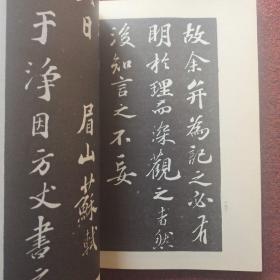 故余并為記之必有
明於理而深觀之者然
後知言之不妄
日眉山蘇軾
于淨因方丈書之